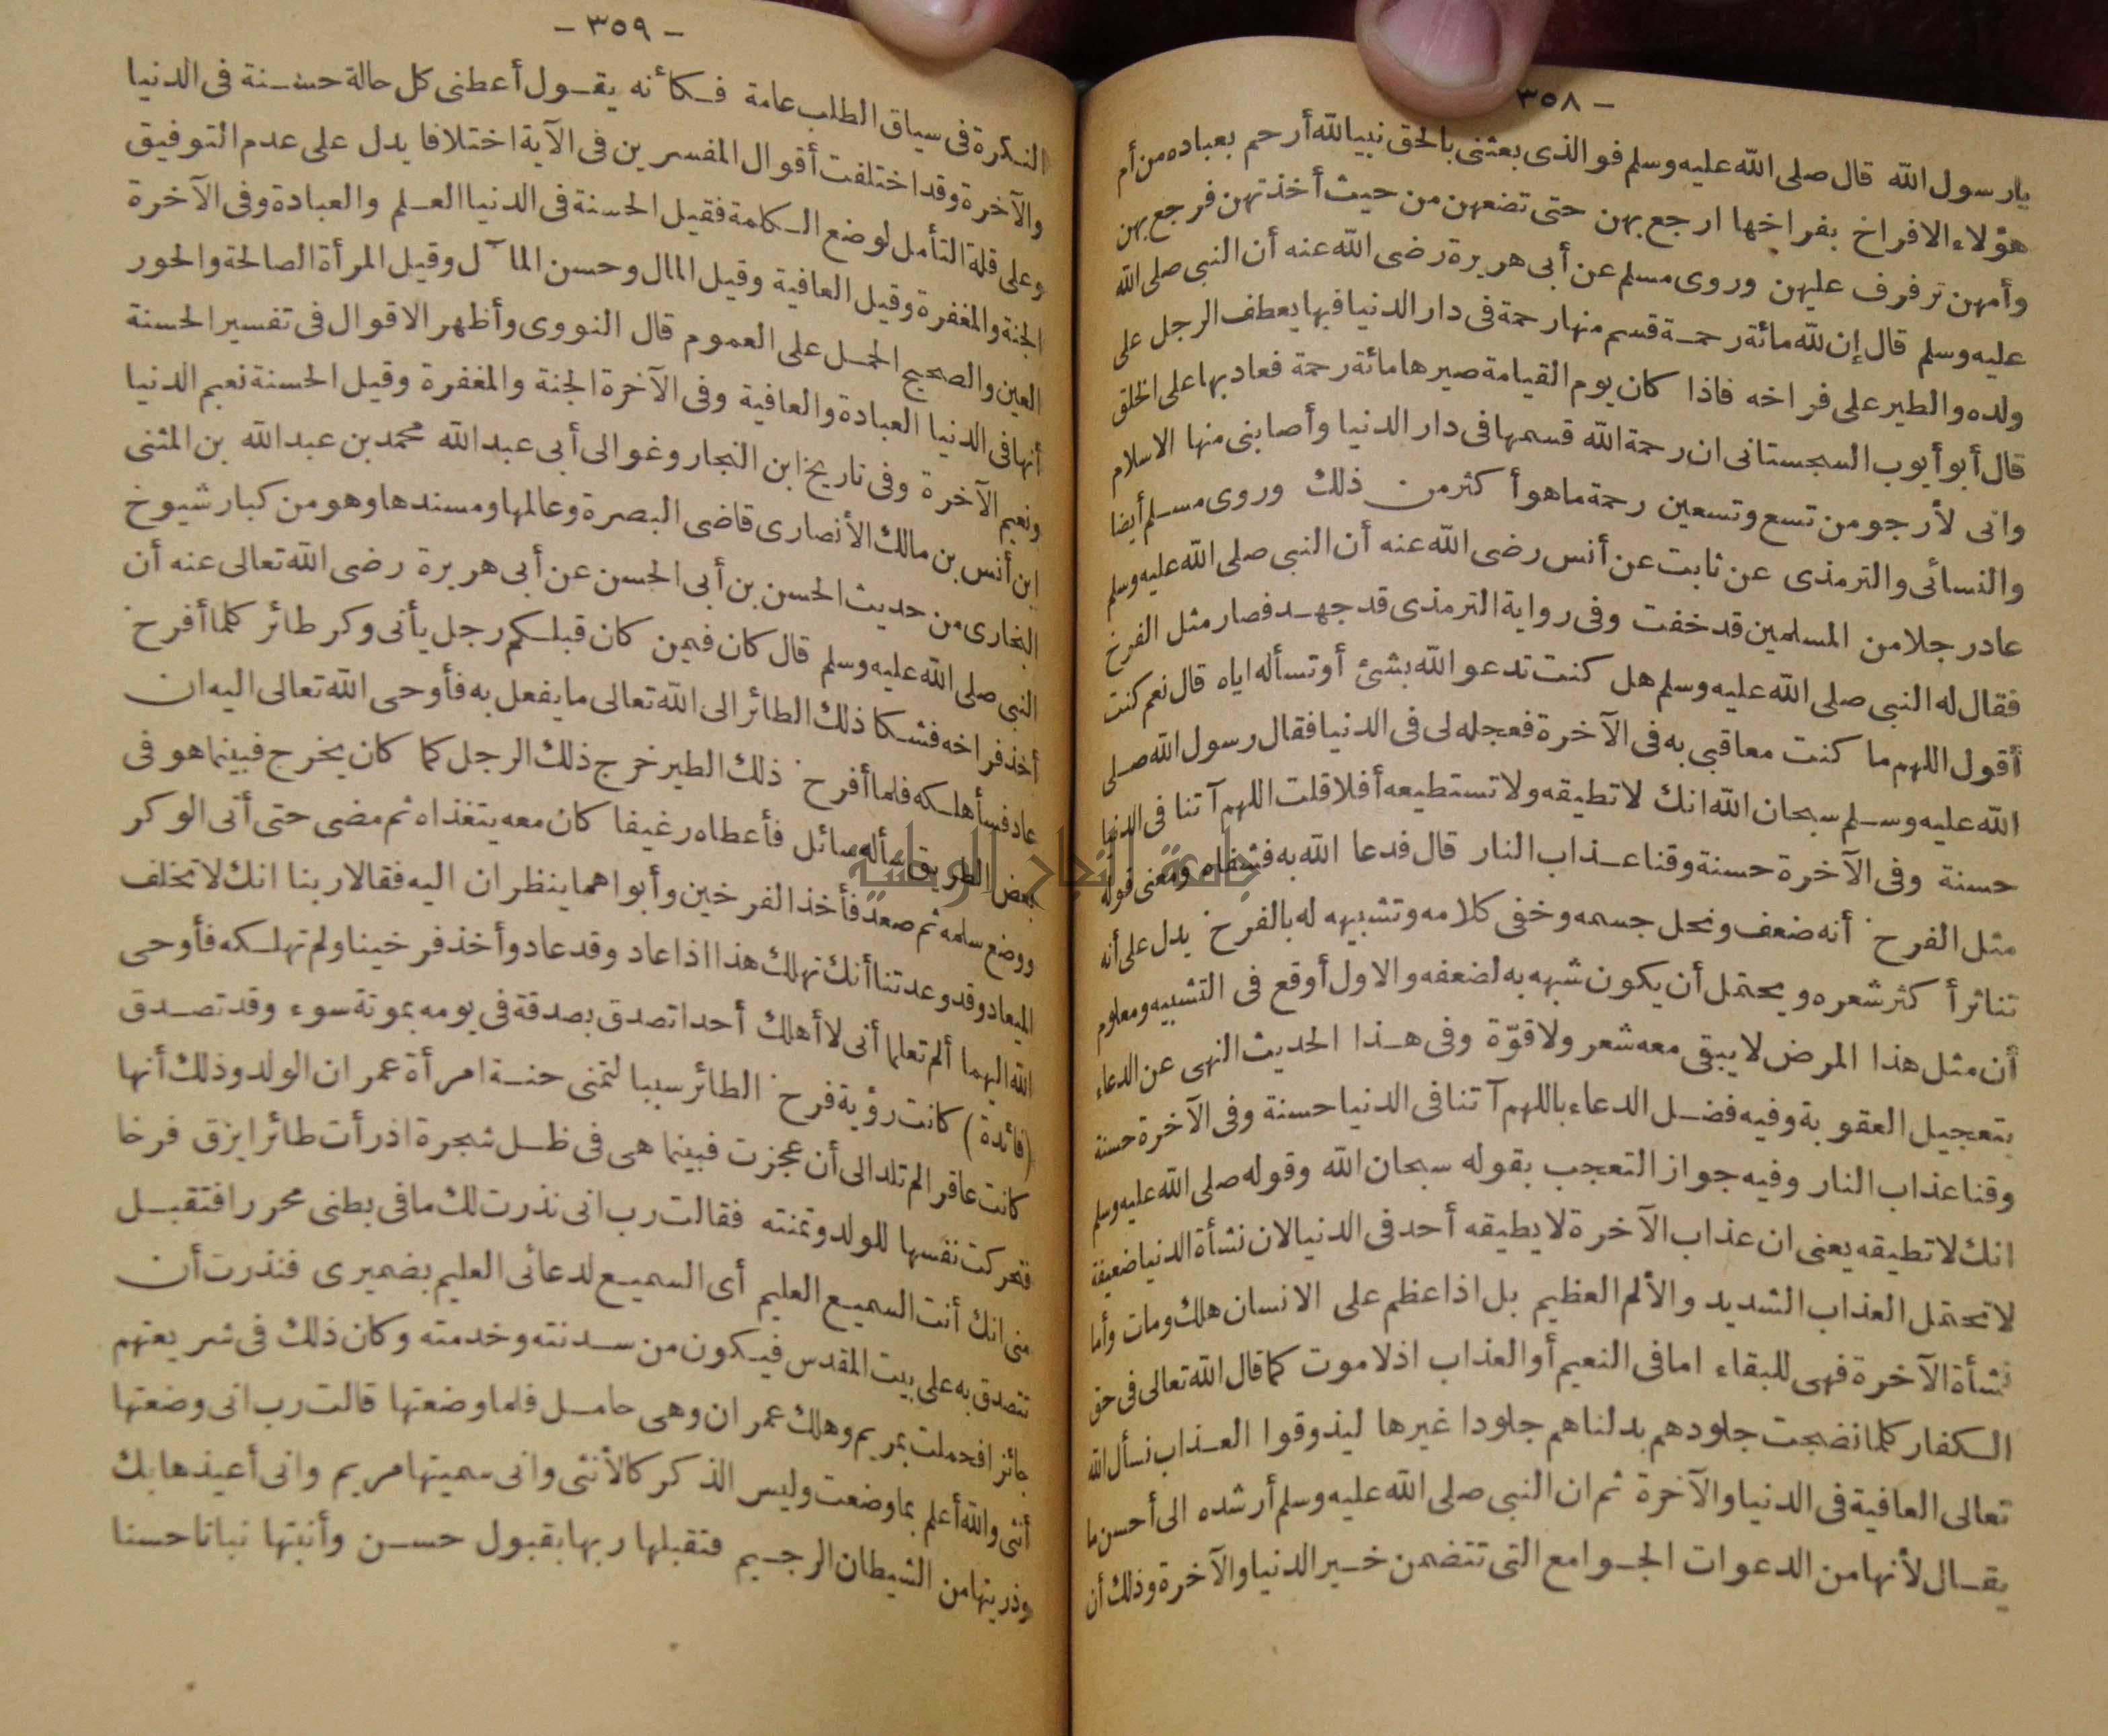 – ٣٥٨
يارسول الله قال صلى الله عليه وسلم فوالذى بعثنى بالحق نبيا لله أرحم بعباده من أم
هؤلاء الافراخ بفراخها ارجع بهن حتى تضعهن من حيث أخذتهن فرجع بهن
وأمهن ترفرف عليهن وروى مسلم عن أبى هريرة رضى الله عنه أن النبى صلى الله
عليه وسلم قال إن لله مائة رحمة قسم منها رحمة فى دار الدنيا فبها يعطف الرجل على
ولده والطير على فراخه فاذا كان يوم القيامة صيرها مائة رحمة فعاد بها على الخلق
قال أبو أيوب السجستانى ان رحمة الله قسمها فى دار الدنيا وأصابنى منها الاسلام
وانى لأرجو من تسع وتسعين رحمة ما هو أكثر من ذلك وروى مسلم أيضا
والنسائى والترمذى عن ثابت عن أنس رضى الله عنه أن النبى صلى الله عليه وسلم
عاد رجلا من المسلمين قد خفت وفى رواية الترمذى قد جهد فصار مثل الفرخ
فقال له النبى صلى الله عليه وسلم هل كنت تدعو الله بشئ أو تسأله اياه قال نعم كنت
أقول اللهم ما كنت معاقبى به فى الآخرة فعجله لى فى الدنيا فقال رسول الله صلى
الله عليه وسلم سبحان الله انك لا تطيقه ولا تستطيعه أفلا قلت اللهم آتنا فى الدنيا
حسنة وفى الآخرة حسنة وقنا عذاب النار قال فدعا الله به فشفاه ومعنى قوله
مثل الفرخ أنه ضعف ونحل جسمه وخفى كلامه وتشبيهه له بالفرخ يدل على أنه
تناثر أكثر شعره ويحتمل أن يكون شبهه به لضعفه والاول أوقع فى التشبيه ومعلوم
أن مثل هذا المرض لا يبقى معه شعر ولا قوّة وفى هذا الحديث النهى عن الدعاء
بتعجيل العقوبة وفيه فضل الدعاء باللهم آتنا فى الدنيا حسنة وفى الآخرة حسنة
وقنا عذاب النار وفيه جواز التعجب بقوله سبحان الله وقوله صلى الله عليه وسلم
انك لا تطيقه يعنى ان عذاب الآخرة لا يطيقه أحد فى الدنيا لان نشأة الدنيا ضعيفة
لا تحتمل العذاب الشديد والألم العظيم بل اذا عظم على الانسان هلك ومات وأما
نشأة الآخرة فهى للبقاء اما فى النعيم أو العذاب اذ لا موت كما قال الله تعالى فى حق
الكفار كلما نضجت جلودهم بدلناهم جلودا غيرها ليذوقوا العذاب نسأل الله
تعالى العافية فى الدنيا والآخرة ثم ان النبى صلى الله عليه وسلم أرشده الى أحسن ما
يقال لأنها من الدعوات الجوامع التى تتضمن خير الدنيا والآخرة وذلك أن
– ٣٥٩ –
النكرة فى سياق الطلب عامة فكأنه يقول أعطنى كل حالة حسنة فى الدنيا
والآخرة وقد اختلفت أقوال المفسرين فى الآية اختلافا يدل على عدم التوفيق
وعلى قلة التأمل لوضع الكلمة فقيل الحسنة فى الدنيا العلم والعبادة وفى الآخرة
الجنة والمغفرة وقيل العافية وقيل المال وحسن المآل وقيل المرأة الصالحة والحور
العين والصحيح الحمل على العموم قال النووى وأظهر الاقوال فى تفسير الحسنة
أنها فى الدنيا العبادة والعافية وفى الآخرة الجنة والمغفرة وقيل الحسنة نعيم الدنيا
ونعيم الآخرة وفى تاريخ ابن النجار وغوالى أبى عبد الله محمد بن عبد الله بن المثنى
ابن أنس بن مالك الأنصارى قاضى البصرة وعالمها ومسندها وهو من كبار شيوخ
البخارى من حديث الحسن بن أبى الحسن عن أبى هريرة رضى الله تعالى عنه أن
النبى صلى الله عليه وسلم قال كان فيمن كان قبلكم رجل يأتى وكر طائر كلما أفرخ
أخذ فراخه فشكا ذلك الطائر الى الله تعالى ما يفعل به فأوحى الله تعالى اليه ان
عاد فسأهلكه فلما أفرخ ذلك الطير خرج ذلك الرجل كما كان يخرج فبينما هو فى
بعض الطريق سأله سائل فأعطاه رغيفا كان معه يتغذاه ثم مضى حتى أتى الوكر
ووضع سلمه ثم صعد فأخذ الفرخين وأبواهما ينظران اليه فقالا ربنا انك لا تخلف
الميعاد وقد وعدتنا أنك تهلك هذا اذا عاد وقد عاد وأخذ فرخينا ولم تهلكه فأوحى
الله اليهما ألم تعلما أنى لا أهلك أحدا تصدق بصدقة فى يومه بموتة سوء وقد تصدق
(فائدة) كانت رؤية فرخ الطائر سببا لتمنى حنة امرأة عمران الولد وذلك أنها
كانت عاقرا لم تلد الى أن عجزت فبينما هى فى ظل شجرة اذ رأت طائرا يزق فرخا
فتحركت نفسها للولد وتمنته فقالت رب انى نذرت لك ما فى بطنى محررا فتقبل
منى انك أنت السميع العليم أى السميع لدعائى العليم بضميرى فنذرت أن
تتصدق به على بيت المقدس فيكون من سدنته وخدمته وكان ذلك فى شريعتهم
جائزا فحملت بمريم وهلك عمران وهى حامل فلما وضعتها قالت رب انى وضعتها
أنثى والله أعلم بما وضعت وليس الذكر كالأنثى وانى سميتها مريم وانى أعيذها بك
وذريتها من الشيطان الرجيم فتقبلها ربها بقبول حسن وأنبتها نباتا حسنا
جامعة النجاح الوطنية